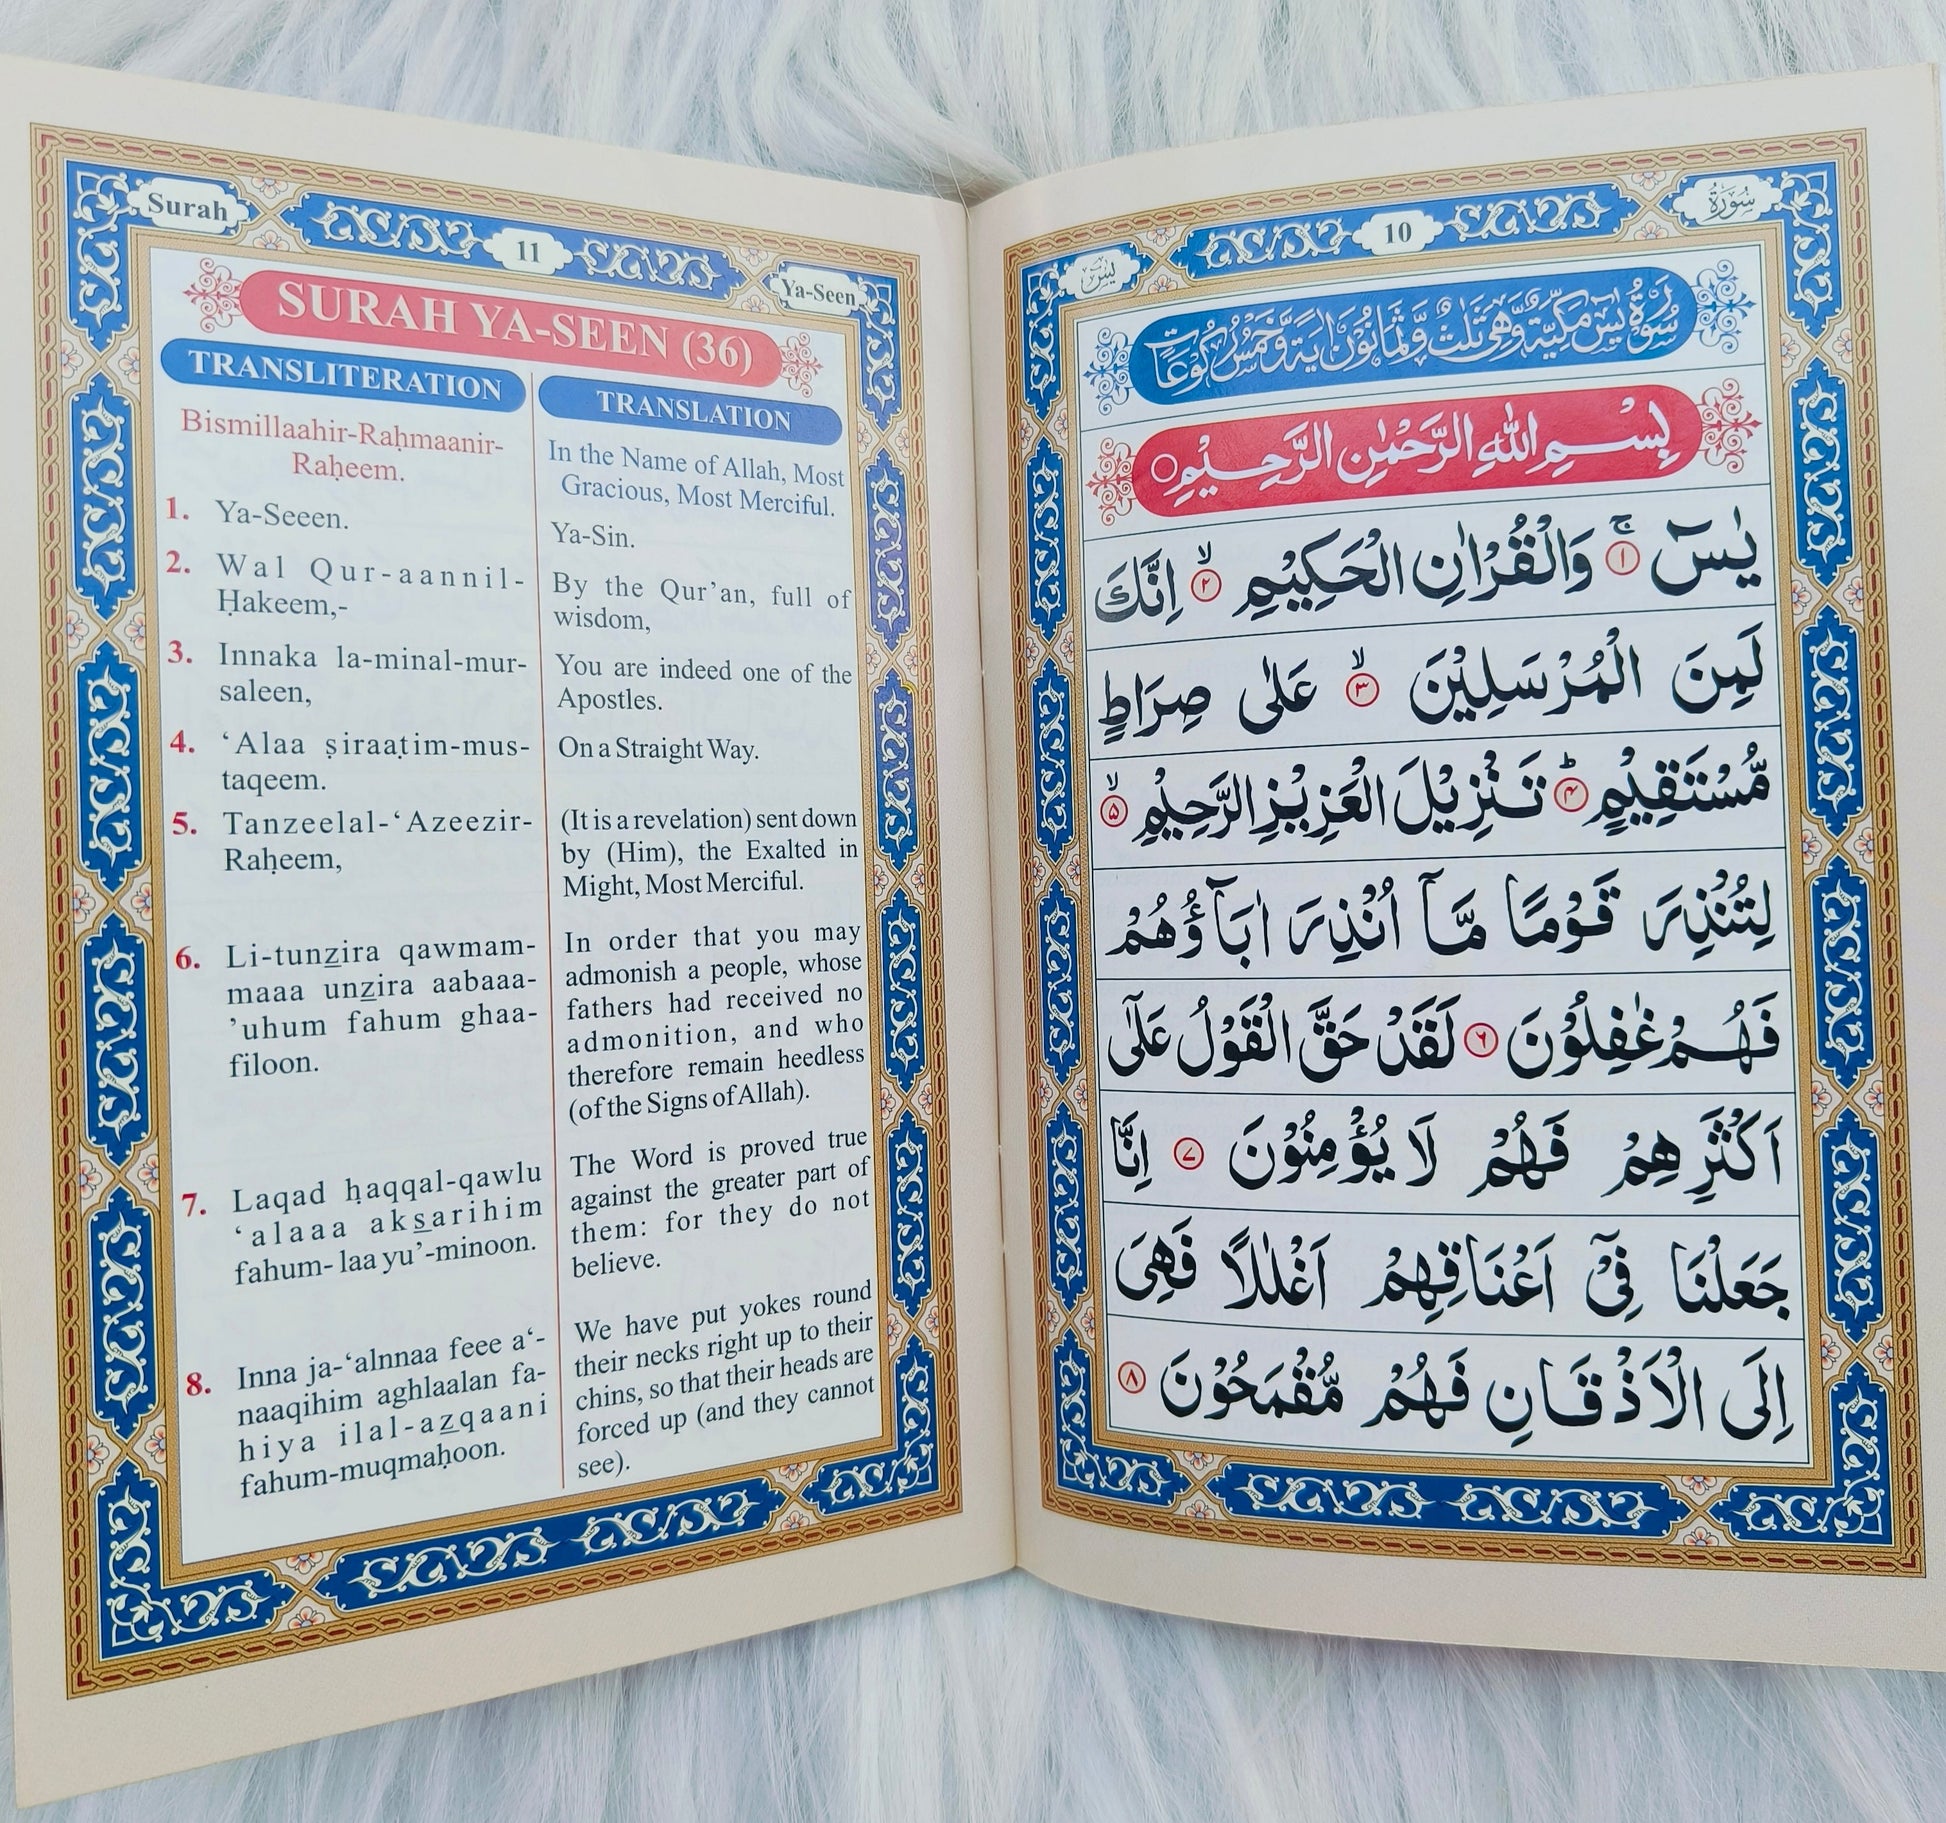 Surah
11
Ya-Seen
SURAH YA-SEEN (36)
TRANSLITERATION
Bismillaahir-Raḥmaanir-
Raḥeem.
1. Ya-Seeen.
2. Wal Qur-aannil-
Ḥakeem,-
3. Innaka la-minal-mur-
saleen,
4. ‘Alaa ṣiraaṭim-mus-
taqeem.
5. Tanzeelal-‘Azeezir-
Raḥeem,
6. Li-tunz̲ira qawmam-
maaa unz̲ira aabaaa-
’uhum fahum ghaa-
filoon.
7. Laqad ḥaqqal-qawlu
‘alaaa aks̲arihim
fahum- laa yu’-minoon.
8. Inna ja-‘alnnaa feee a‘-
naaqihim aghlaalan fa-
hiya ilal-az̲qaani
fahum-muqmaḥoon.
TRANSLATION
In the Name of Allah, Most
Gracious, Most Merciful.
Ya-Sin.
By the Qur’an, full of
wisdom,
You are indeed one of the
Apostles.
On a Straight Way.
(It is a revelation) sent down
by (Him), the Exalted in
Might, Most Merciful.
In order that you may
admonish a people, whose
fathers had received no
admonition, and who
therefore remain heedless
(of the Signs of Allah).
The Word is proved true
against the greater part of
them: for they do not
believe.
We have put yokes round
their necks right up to their
chins, so that their heads are
forced up (and they cannot
see).
سُوْرَةُ
10
يٰسٓ
سُوْرَةُ يٰسٓ مَكِّيَّةٌ وَّهِىَ ثَلٰثٌ وَّثَمَانُوْنَ اٰيَةً وَّخَمْسُ رُكُوْعَاتٍ
بِسْمِ اللّٰهِ الرَّحْمٰنِ الرَّحِيْمِ ○
يٰسٓ ۚ ۝۱ وَالْقُرْاٰنِ الْحَكِيْمِ ۙ ۝۲ اِنَّكَ
لَمِنَ الْمُرْسَلِيْنَ ۙ ۝۳ عَلٰى صِرَاطٍ
مُّسْتَقِيْمٍ ؕ ۝۴ تَنْزِيْلَ الْعَزِيْزِ الرَّحِيْمِ ۙ ۝۵
لِتُنْذِرَ قَوْمًا مَّآ اُنْذِرَ اٰبَآؤُهُمْ
فَهُمْ غٰفِلُوْنَ ۝۶ لَقَدْ حَقَّ الْقَوْلُ عَلٰٓى
اَكْثَرِهِمْ فَهُمْ لَا يُؤْمِنُوْنَ ۝۷ اِنَّا
جَعَلْنَا فِىْٓ اَعْنَاقِهِمْ اَغْلٰلًا فَهِىَ
اِلَى الْاَذْقَانِ فَهُمْ مُّقْمَحُوْنَ ۝۸